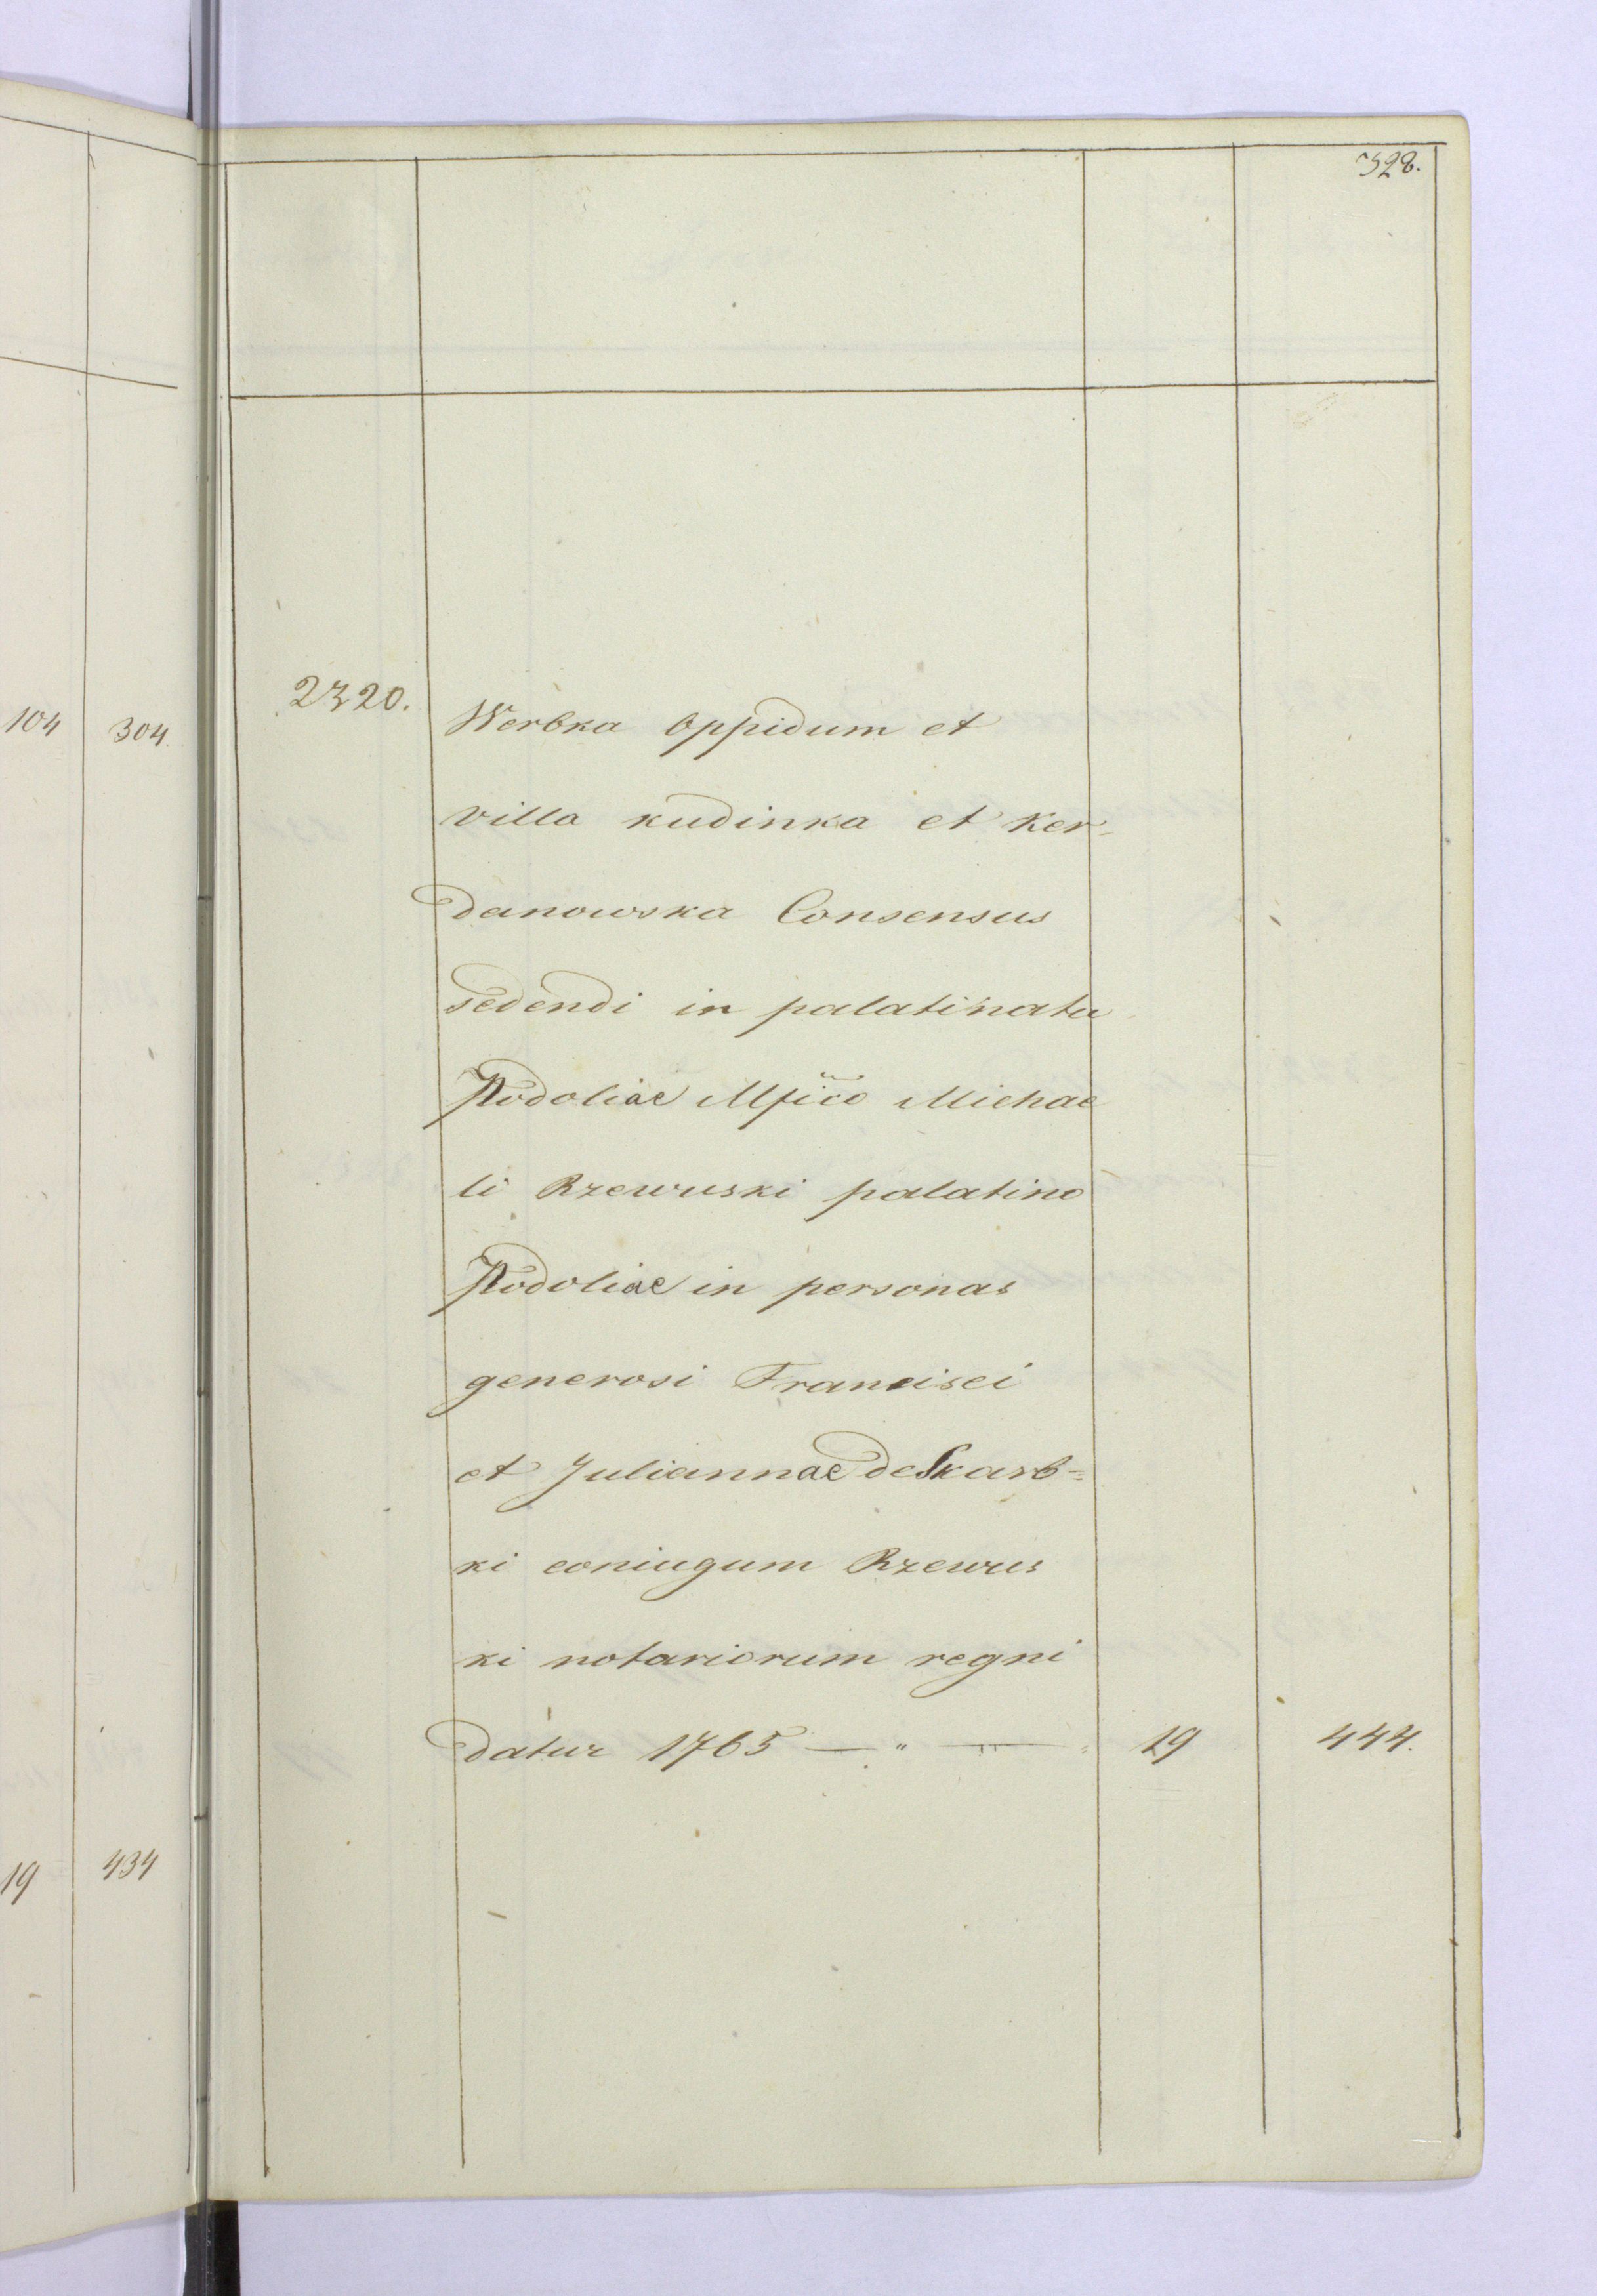 328.
104 304.
2320.
Werbka oppidum et
villa kudinka et Ker-
danowska Consensus
sedendi in palatinatu
Podoliae Mfico Michae
li Rzewuski palatino
Podoliae in personas
generosi Francisci
et Juliannae de Skarb=
ki coniugum Rzewus
ki notariorum regni
datur 1765 — " — " 19 444.
19 434